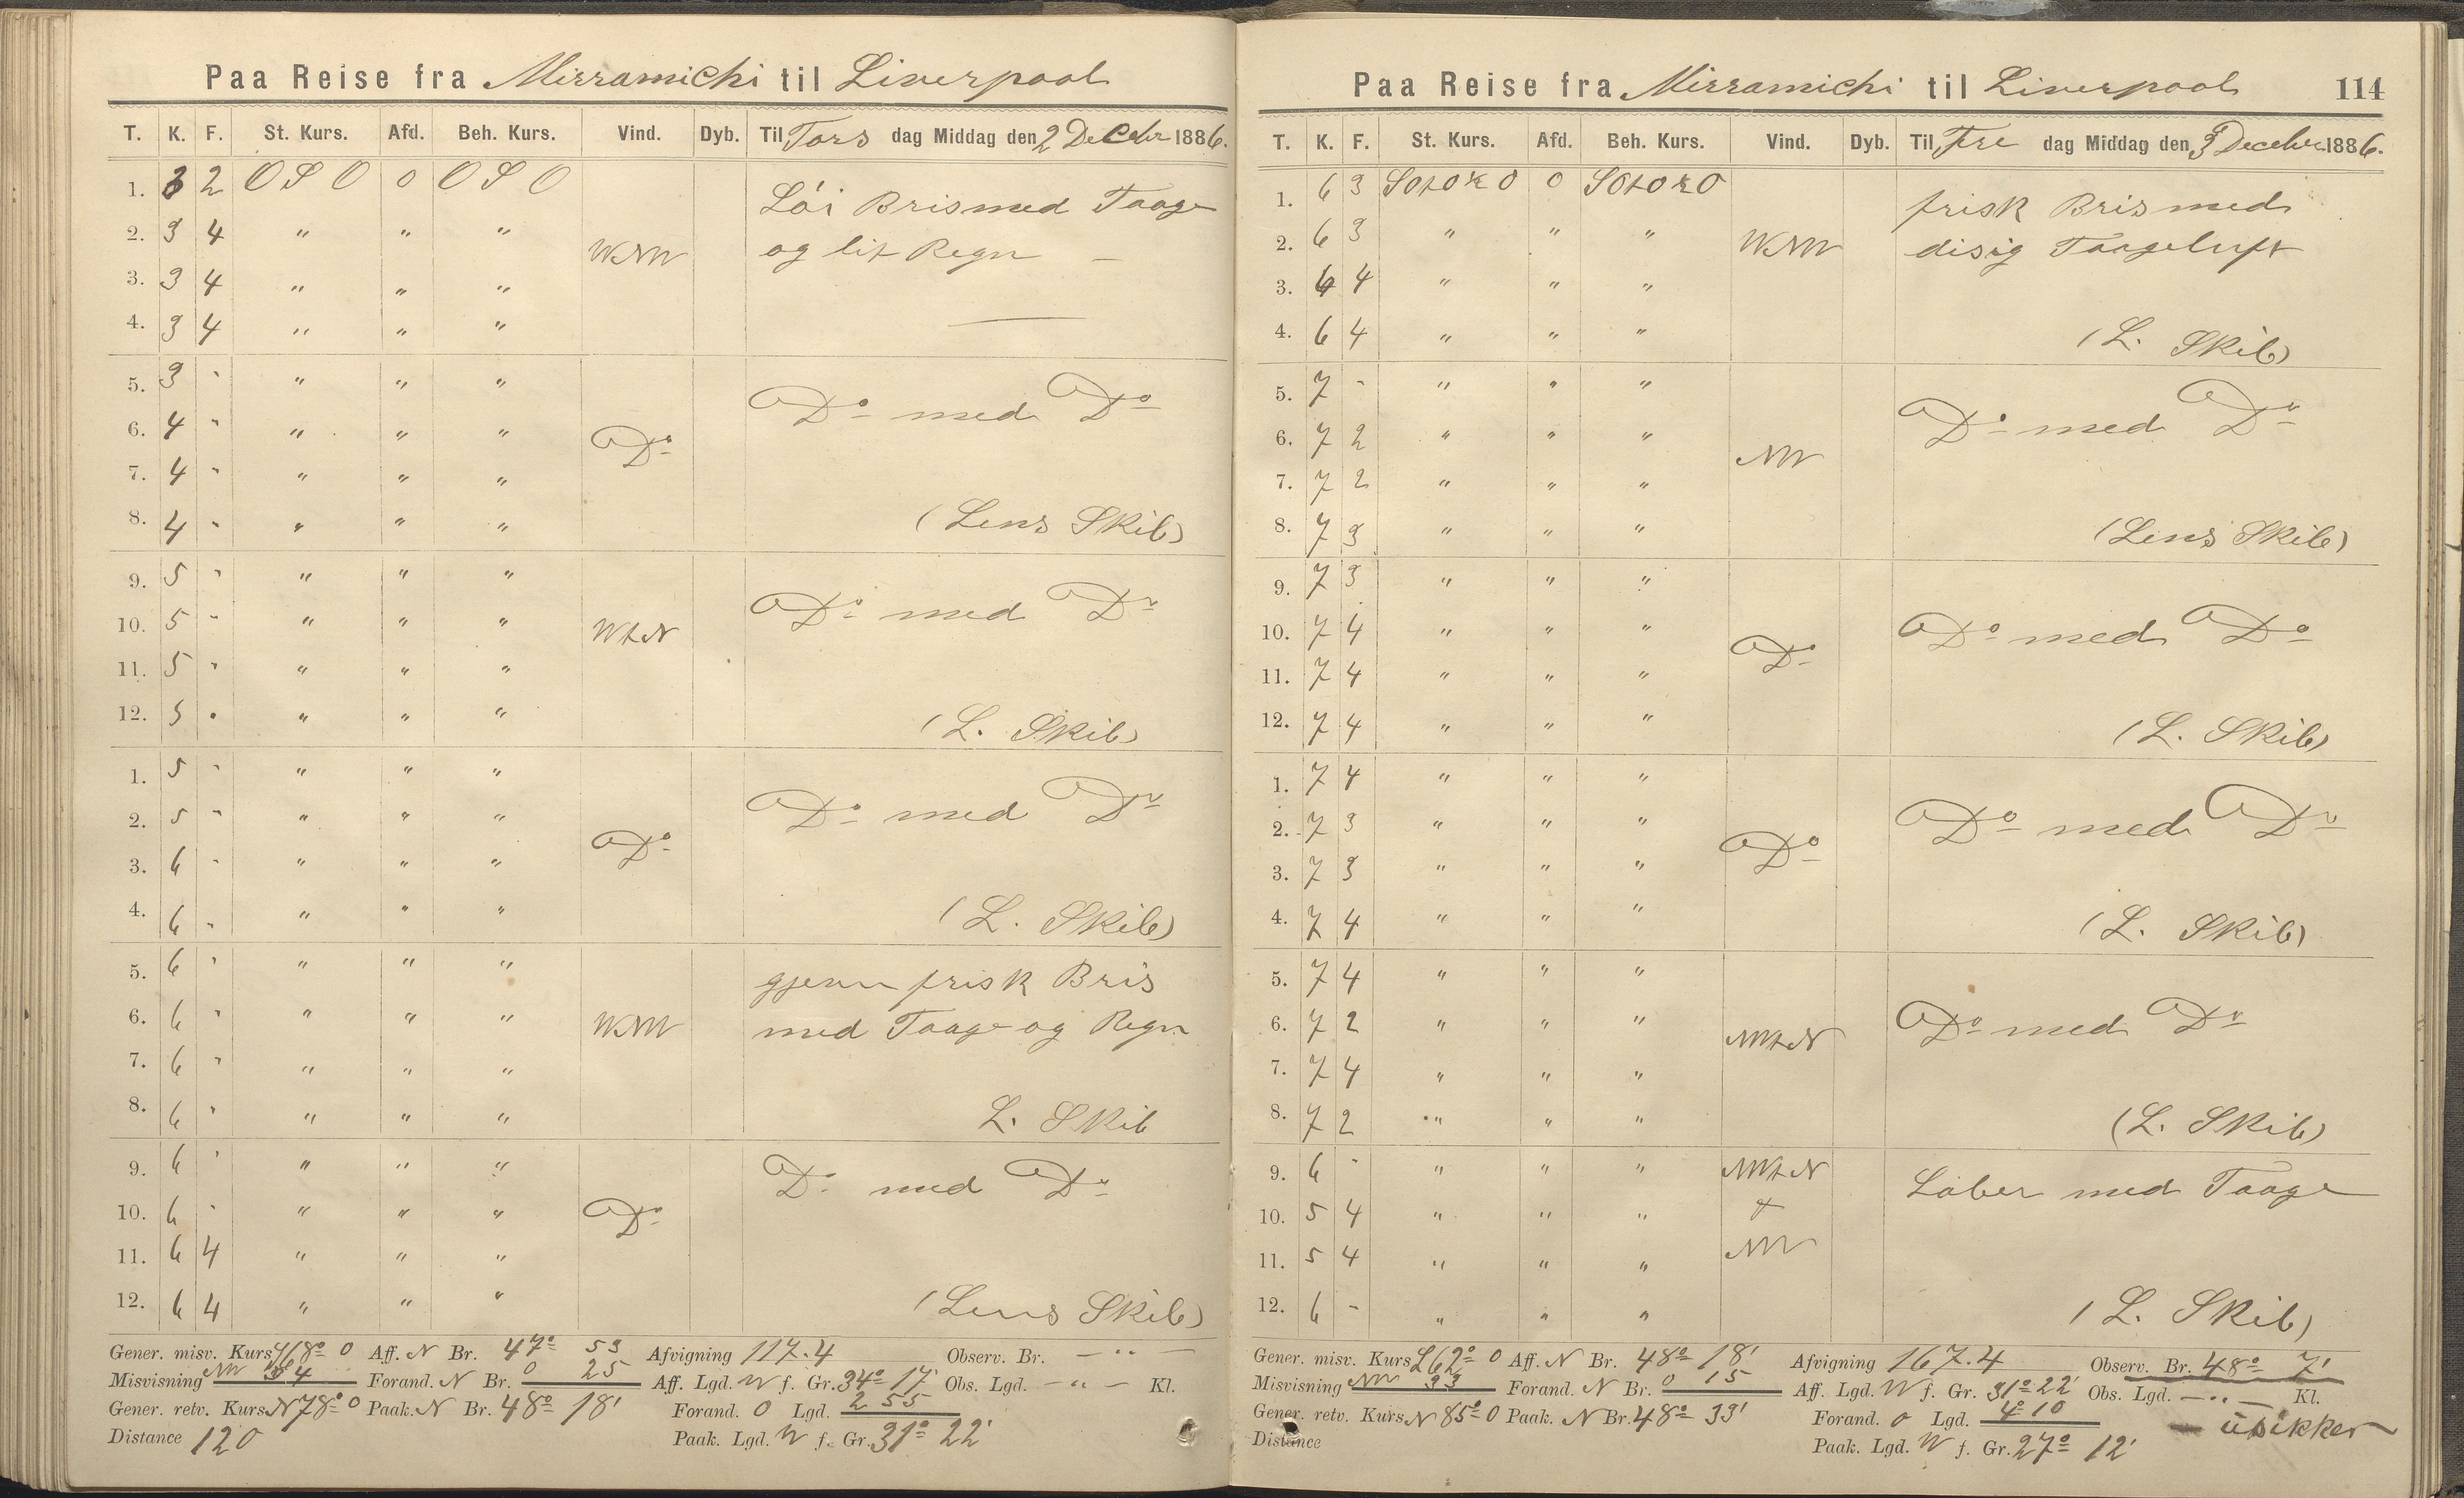 Paa Reise fra Mirramichi til Liverpool
T. K. F. St. Kurs. Afd. Beh. Kurs. Vind. Dyb. Til Tors dag Middag den 2 Decebr 1886.
1. 3 2 O S O o O S O
Löi Bris med Taage
2. 3 4 " " "
WNW og lit Regn —
3. 3 4 " " "
4. 3 4 " " "
5. 3 - " " "
Do med Do
6. 4 - " " " Do
7. 4 - " " "
8. 4 - " " " (Lens Skib)
9. 5 - " " "
Do med Do
10. 5 - " " " WtN
11. 5 - " " "
12. 5 - " " " (L. Skib)
1. 5 - " " "
Do med Do
2. 5 - " " "
3. 6 - " " " Do
4. 6 - " " " (L. Skib)
5. 6 - " " "
gjenn frisk Bris
6. 6 - " " " WNW med Taage og Regn
7. 6 - " " "
8. 6 - " " " L. Skib
9. 6 - " " " Do med Do
10. 6 - " " " Do
11. 6 4 " " "
12. 6 4 " " " (Lens Skib)
Gener. misv. Kurs O Aff. N Br. 47° 53 Afvigning 117.4 Observ. Br. — " —
Misvisning NW 34 Forand. N Br. 0 25 Aff. Lgd. W f. Gr. 34° 17' Obs. Lgd. — " — Kl.
Gener. retv. Kurs N 78° O Paak. N Br. 48° 18' Forand. O Lgd. 2 55
Distance 120 Paak. Lgd. W f. Gr. 31° 22'
Paa Reise fra Mirramichi til Liverpool 114
T. K. F. St. Kurs. Afd. Beh. Kurs. Vind. Dyb. Til Fre dag Middag den 3 Decebr 1886.
1. 6 3 SOtO½O o SOtO½O
frisk Bris med
2. 6 3 " " " WNW disig Taageluft
3. 6 4 " " "
4. 6 4 " " " (L. Skib)
5. 7 - " " "
Do med Do
6. 7 2 " " " NW
7. 7 2 " " "
8. 7 3 " " " (Lens Skib)
9. 7 3 " " "
10. 7 4 " " " Do med Do
11. 7 4 " " " Do
12. 7 4 " " " (L. Skib)
1. 7 4 " " "
2. 7 3 " " " Do med Do
3. 7 3 " " " Do
4. 7 4 " " " (L. Skib)
5. 7 4 " " "
6. 7 2 " " " NWtN Do med Do
7. 7 4 " " "
8. 7 2 " " " (L. Skib)
9. 6 - " " " NWtN Laber med Taage
10. 5 4 " " " &
11. 5 4 " " " NW
12. 6 - " " " (L. Skib)
Gener. misv. Kurs S 62° O Aff. N Br. 48° 18' Afvigning 167.4 Observ. Br. 48° 7'
Misvisning NW 33 Forand. N Br. 0 15 Aff. Lgd. W f. Gr. 31° 22' Obs. Lgd. — " — Kl.
Gener. retv. Kurs N 85° O Paak. N Br. 48° 33' Forand. O Lgd. 4° 10 — usikker
Distance Paak. Lgd. W f. Gr. 27° 12'